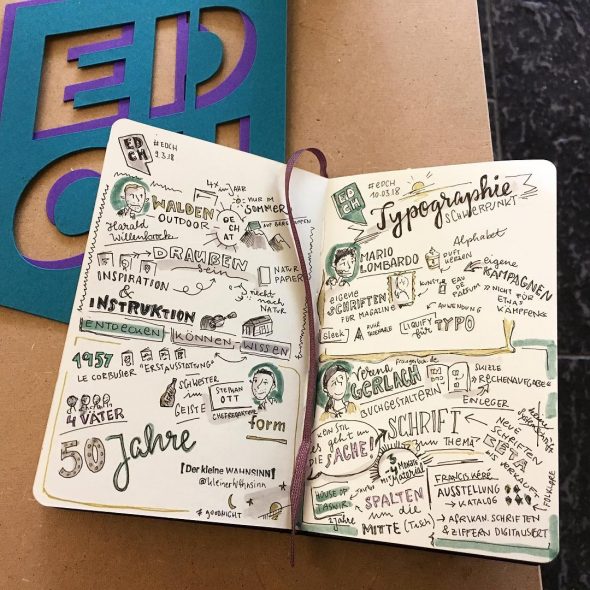 ED
CH
ED
CH
#EDCH
9.3.18
4x im JAHR
NUR IM
SOMMER
WALDEN
OUTDOOR
DE
CH
AT
AUF
Harald
Willenbrock
DRAUßEN
sein
NATUR
PAPIER
INSPIRATION
&
riecht
nach
NATUR
INSTRUKTION
ENTDECKEN KÖNNEN WISSEN
1957
LE CORBUSIER "ERSTAUSSTATTUNG"
4 VÄTER
SCHWESTER
im
GEISTE
STEPHAN
OTT
CHEFREDAKTEUR
form
50 Jahre
[Der kleine WAHNSINN]
@kleinerw4hnsinn
# GOODNIGHT
ED
CH
#EDCH
10.03.18
Typographie
SCHWERPUNKT
Alphabet
MARIO
LOMBARDO
DUFT
KERZEN
eigene
KAMPAGNEN
eigene
SCHRIFTEN
FÜR MAGAZINE
KUNST
EAU
DE
PARFUM
"NICHT FÜR
ETWAS
KÄMPFEN"
ANWENDUNG
sleek
LIQUIFY
für TYPO
Verena
GERLACH
fraugerlach.de
BUCHGESTALTERIN
SKIZZE
"RECHENAUFGABE"
EINLEGER
KEIN STIL
es geht um
DIE SACHE!
SCHRIFT
zum THEMA
NEUE
SCHRIFTEN
BETA
VERKAUFT
3 MONATE
MIT Material
HOUSE OF
TASWIR
2 Jahre
SPALTEN
um die
MITTE (Tisch)
FRANCIS KÉRÉ
AUSSTELLUNG
→ KATALOG
FOLKLORE
→ AFRIKAN. SCHRIFTEN
& ZIFFERN DIGITALISIERT